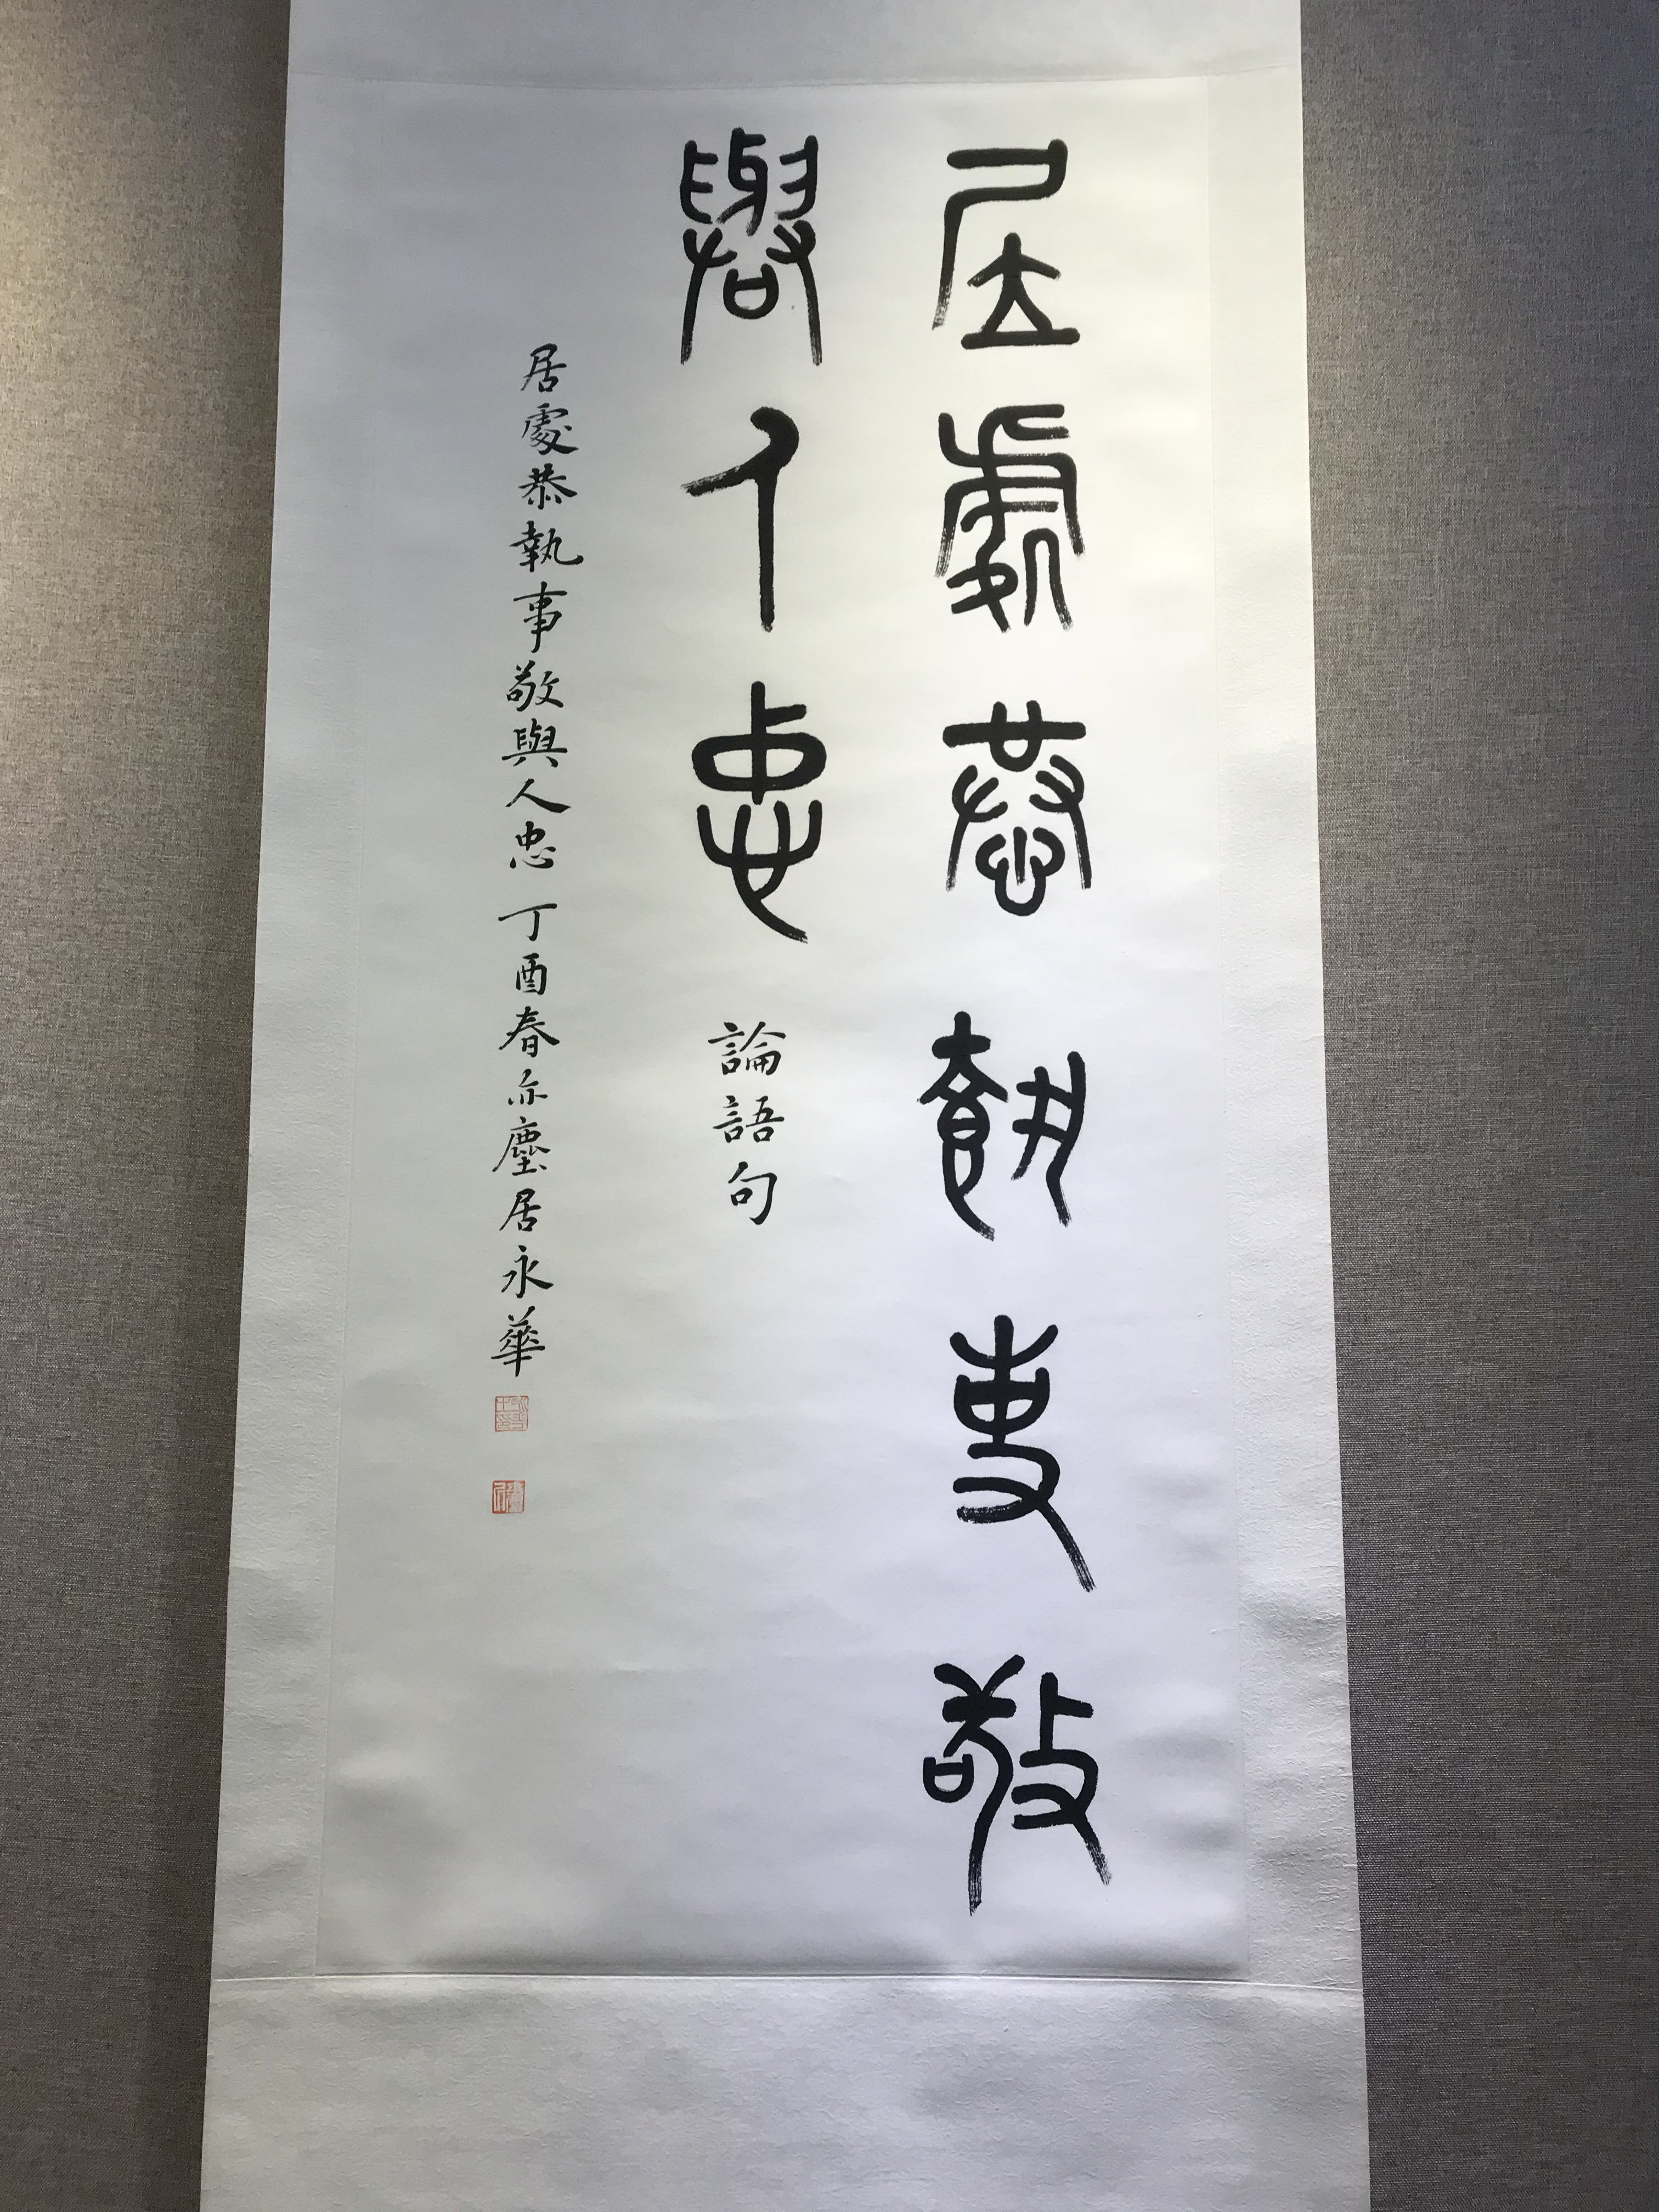 居處恭執事敬
與人忠
論語句
居處恭執事敬與人忠 丁酉春亦塵居永華